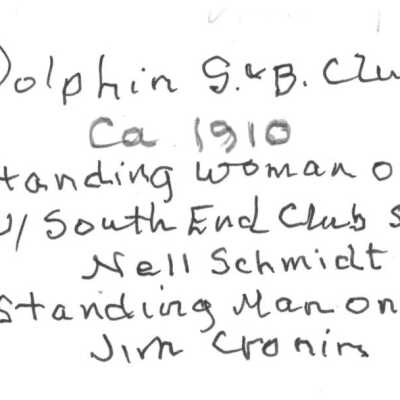 Dolphin S.&B. Clu
Ca 1910
tanding woman o
w/ South End Club S
Nell Schmidt
Standing Man on
Jim Cronin